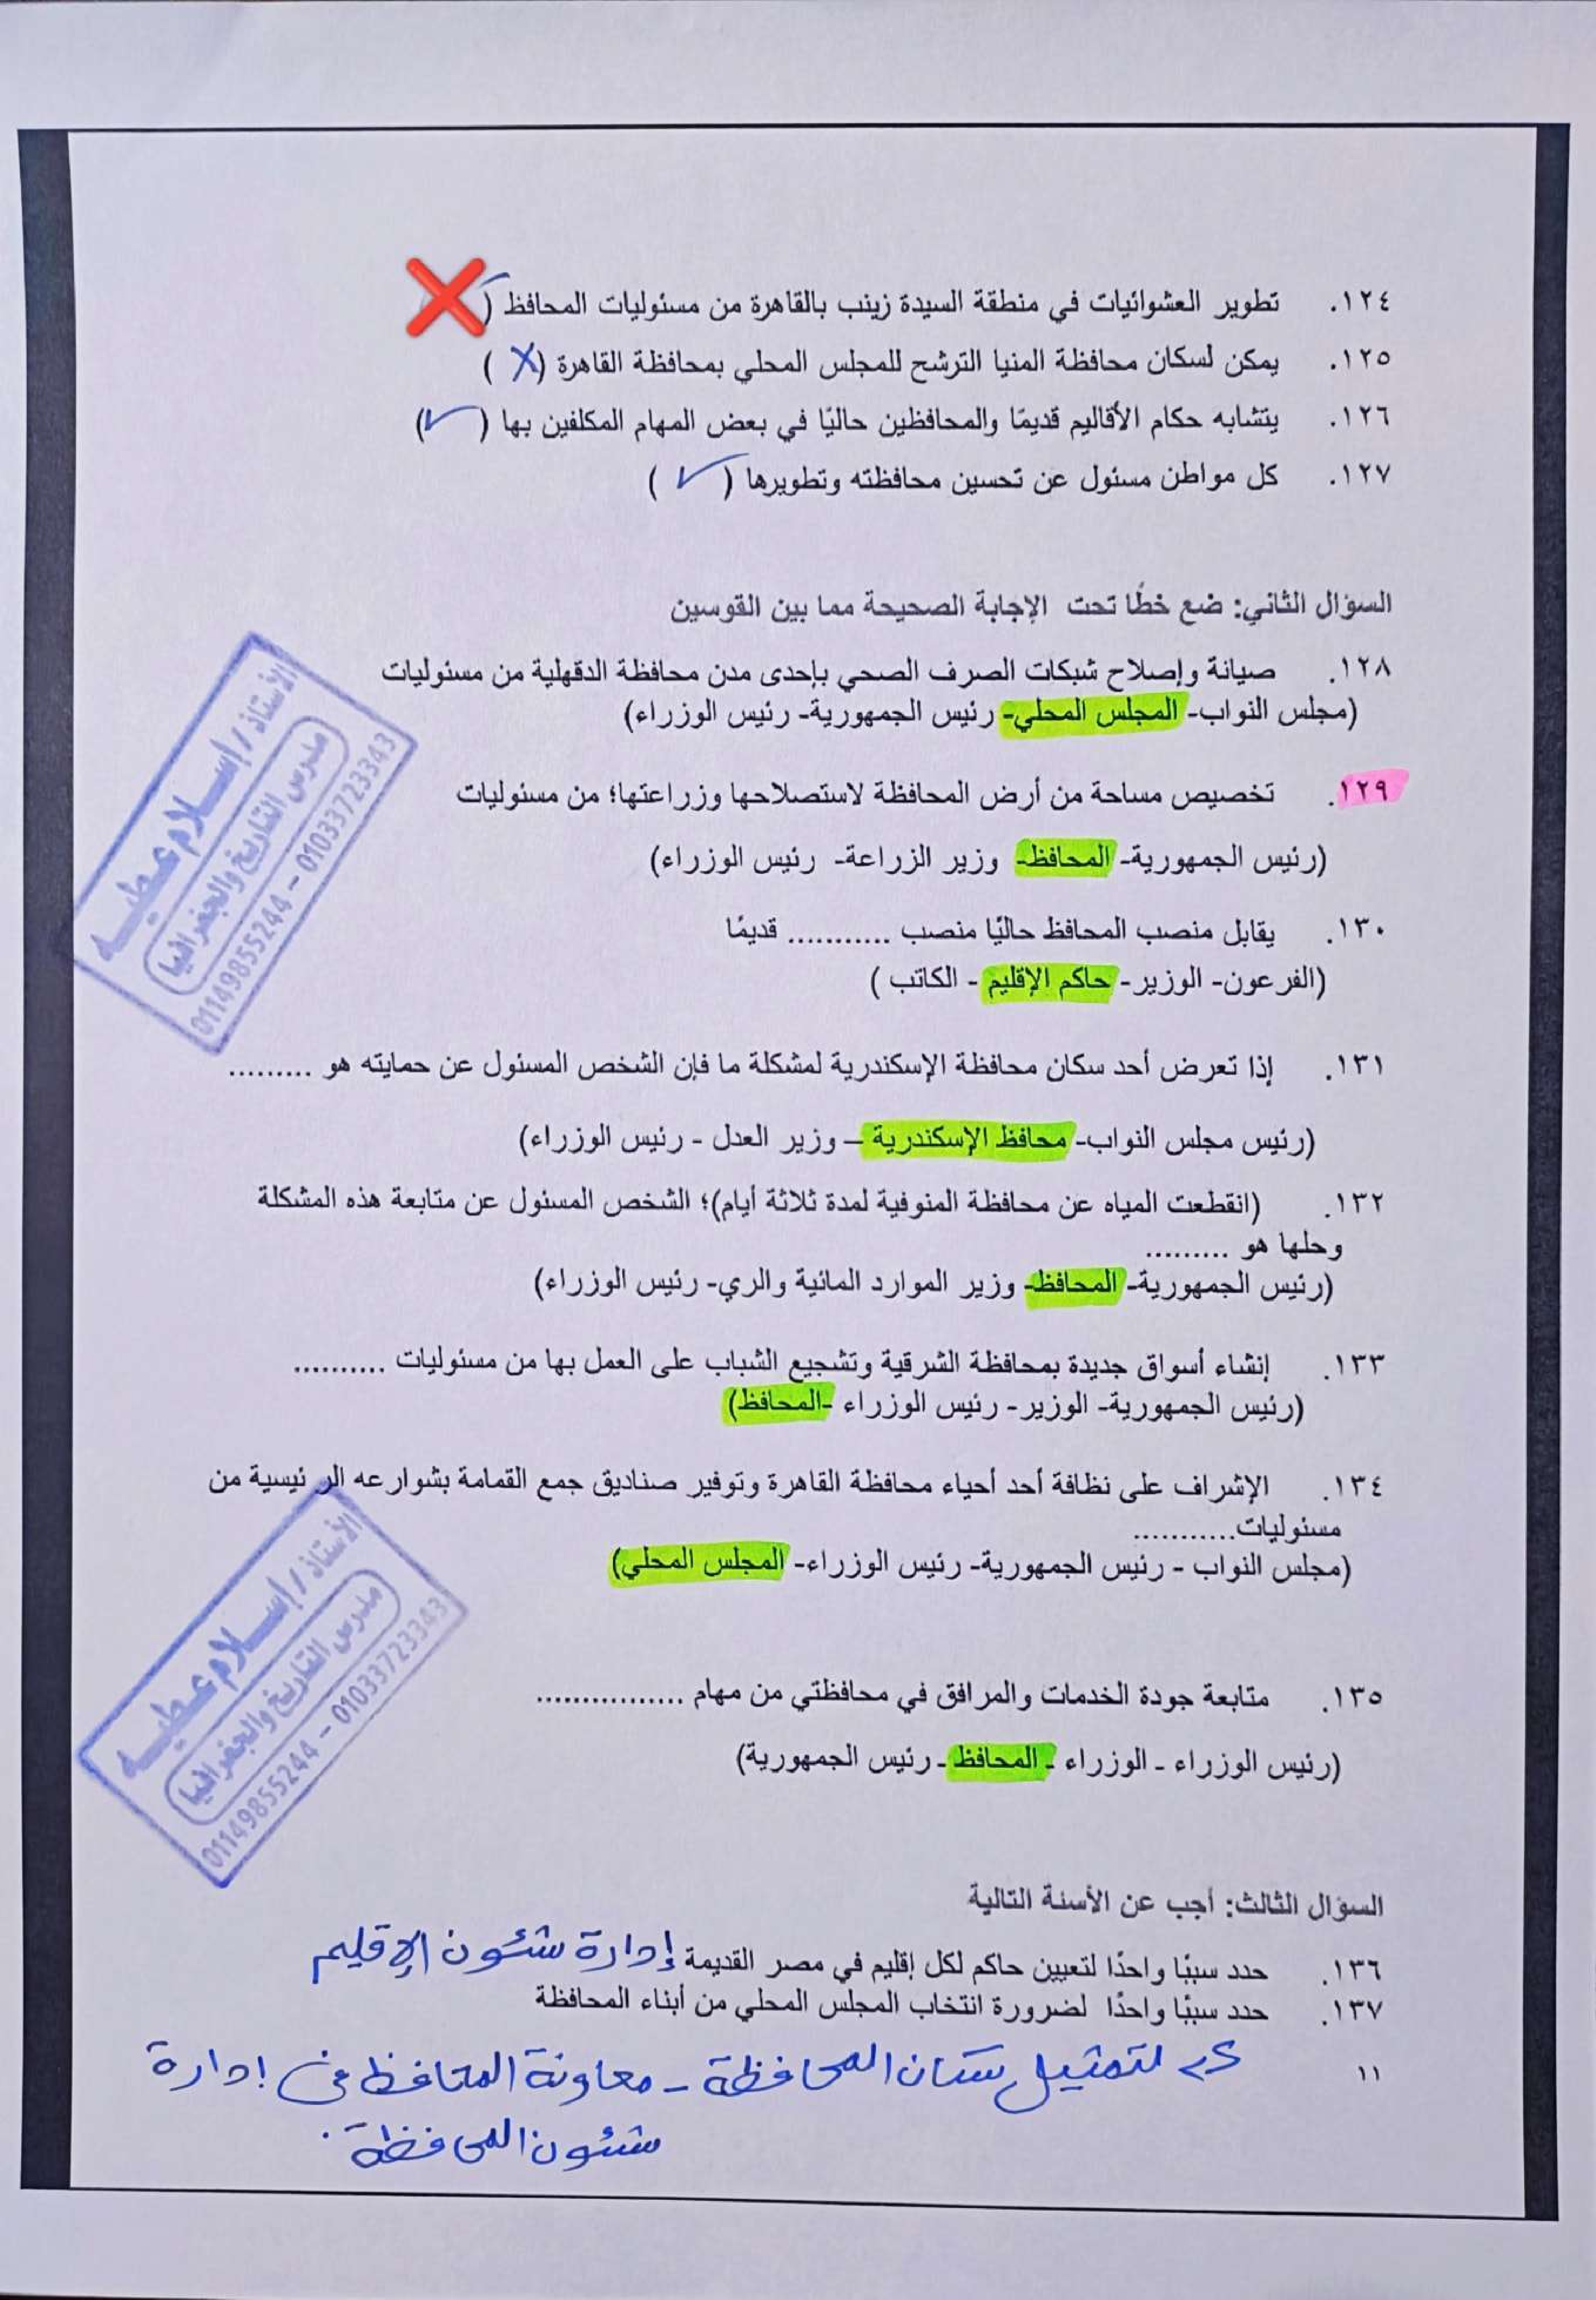 ١٢٤. تطوير العشوائيات في منطقة السيدة زينب بالقاهرة من مسئوليات المحافظ (❌
١٢٥. يمكن لسكان محافظة المنيا الترشح للمجلس المحلي بمحافظة القاهرة (X)
١٢٦. يتشابه حكام الأقاليم قديمًا والمحافظين حاليًا في بعض المهام المكلفين بها (✓)
١٢٧. كل مواطن مسئول عن تحسين محافظته وتطويرها (✓)
السؤال الثاني: ضع خطًا تحت الإجابة الصحيحة مما بين القوسين
١٢٨. صيانة وإصلاح شبكات الصرف الصحي بإحدى مدن محافظة الدقهلية من مسئوليات
(مجلس النواب- المجلس المحلي- رئيس الجمهورية- رئيس الوزراء)
١٢٩. تخصيص مساحة من أرض المحافظة لاستصلاحها وزراعتها؛ من مسئوليات
(رئيس الجمهورية- المحافظ- وزير الزراعة- رئيس الوزراء)
١٣٠. يقابل منصب المحافظ حاليًا منصب ........... قديمًا
(الفرعون- الوزير- حاكم الإقليم - الكاتب )
١٣١. إذا تعرض أحد سكان محافظة الإسكندرية لمشكلة ما فإن الشخص المسئول عن حمايته هو .........
(رئيس مجلس النواب- محافظ الإسكندرية – وزير العدل - رئيس الوزراء)
١٣٢. (انقطعت المياه عن محافظة المنوفية لمدة ثلاثة أيام)؛ الشخص المسئول عن متابعة هذه المشكلة
وحلها هو .........
(رئيس الجمهورية- المحافظ- وزير الموارد المائية والري- رئيس الوزراء)
١٣٣. إنشاء أسواق جديدة بمحافظة الشرقية وتشجيع الشباب على العمل بها من مسئوليات ..........
(رئيس الجمهورية- الوزير- رئيس الوزراء -المحافظ)
١٣٤. الإشراف على نظافة أحد أحياء محافظة القاهرة وتوفير صناديق جمع القمامة بشوارعه الر ئيسية من
مسئوليات...........
(مجلس النواب - رئيس الجمهورية- رئيس الوزراء- المجلس المحلي)
١٣٥. متابعة جودة الخدمات والمرافق في محافظتي من مهام ................
(رئيس الوزراء - الوزراء - المحافظ - رئيس الجمهورية)
السؤال الثالث: أجب عن الأسئة التالية
١٣٦. حدد سببًا واحدًا لتعيين حاكم لكل إقليم في مصر القديمة إدارة شئون الإقليم
١٣٧. حدد سببًا واحدًا لضرورة انتخاب المجلس المحلي من أبناء المحافظة
لتمثيل سكان المحافظة - معاونة المحافظ في إدارة
شئون المحافظة.
١١
الأستاذ / إسلام عطيه
مدرس التاريخ والجغرافيا
01149855244 - 01033723343
الأستاذ / إسلام عطيه
مدرس التاريخ والجغرافيا
01149855244 - 01033723343